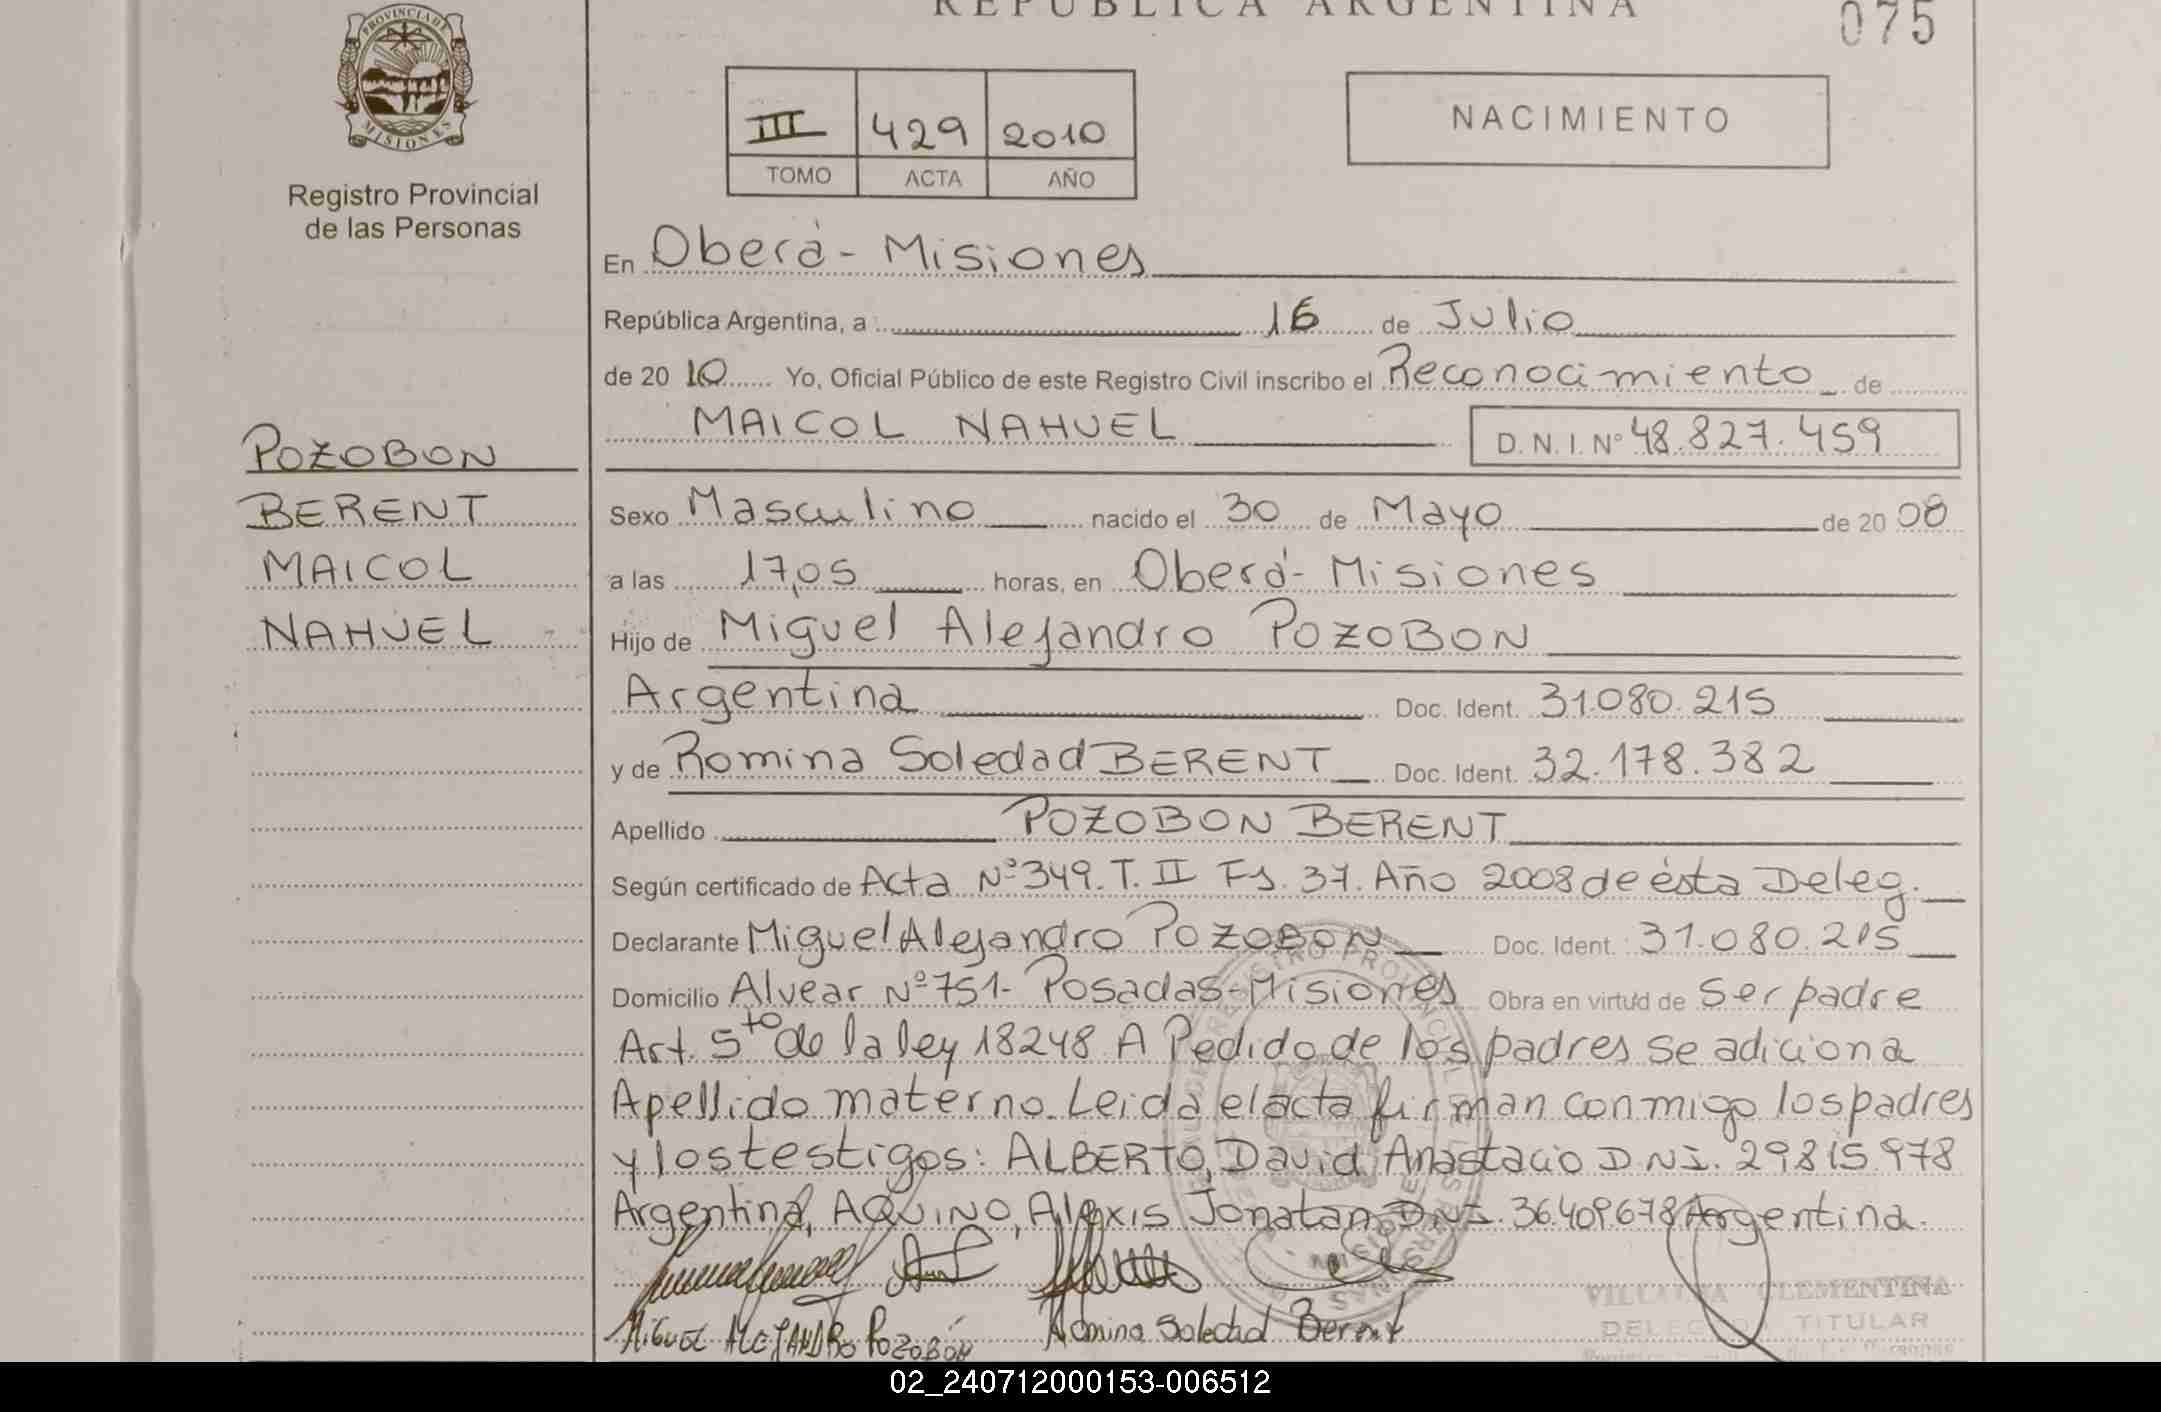 REPUBLICA ARGENTINA
075
PROVINCIA DE MISIONES
Registro Provincial
de las Personas
III 429 2010
TOMO ACTA AÑO
NACIMIENTO
En Oberá - Misiones
República Argentina, a 16 de Julio
de 20 10 Yo, Oficial Público de este Registro Civil inscribo el Reconocimiento de
MAICOL NAHUEL D.N.I. Nº 48.827.459
POZOBON
BERENT
MAICOL
NAHUEL
Sexo Masculino nacido el 30 de Mayo de 20 08
a las 17,05 horas, en Oberá - Misiones
Hijo de Miguel Alejandro POZOBON
Argentina Doc. Ident. 31.080.215
y de Romina Soledad BERENT Doc. Ident. 32.178.382
Apellido POZOBON BERENT
Según certificado de Acta Nº 349. T. II Fs. 37. Año 2008 de ésta Deleg.
Declarante Miguel Alejandro POZOBON Doc. Ident. 31.080.215
Domicilio Alvear Nº 751- Posadas - Misiones Obra en virtud de Ser padre
Art. 5to de la ley 18248 A Pedido de los padres se adiciona
Apellido materno. Leida el acta firman conmigo los padres
y los testigos: ALBERTO, David Anastacio D.N.I. 29.815.978
Argentina, AQUINO, Alexis Jonatan D.N.I. 36.409.678 Argentina.
MIGUEL ALEJANDRO POZOBÓN Romina Soledad Berent
VILLALVA CLEMENTINA
DELEGADA TITULAR
02_240712000153-006512